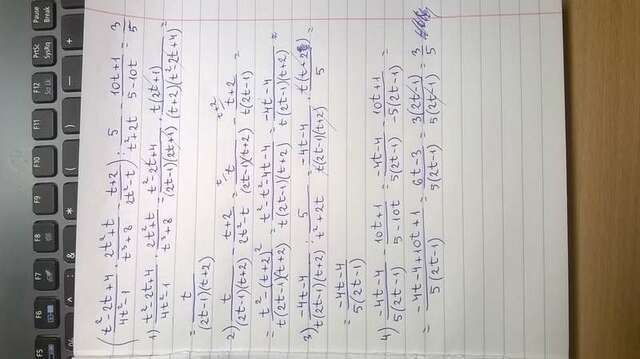 (t²-2t+4 / 4t²-1 · 2t²+t / t³+8 - t+2 / 2t²-t) : 5 / t²+2t - 10t+1 / 5-10t = 3 / 5
1) t²-2t+4 / 4t²-1 · 2t²+t / t³+8 = t²-2t+4 / (2t-1)(2t+1) · t(2t+1) / (t+2)(t²-2t+4) =
= t / (2t-1)(t+2)
2) t / (2t-1)(t+2) - t+2 / 2t²-t = t / (2t-1)(t+2) - t+2 / t(2t-1) =
= t²-(t+2)² / t(2t-1)(t+2) = t²-t²-4t-4 / t(2t-1)(t+2) = -4t-4 / t(2t-1)(t+2)
3) -4t-4 / t(2t-1)(t+2) : 5 / t²+2t = -4t-4 / t(2t-1)(t+2) · t(t+2) / 5 =
= -4t-4 / 5(2t-1)
4) -4t-4 / 5(2t-1) - 10t+1 / 5-10t = -4t-4 / 5(2t-1) - 10t+1 / -5(2t-1) =
= -4t-4+10t+1 / 5(2t-1) = 6t-3 / 5(2t-1) = 3(2t-1) / 5(2t-1) = 3 / 5
Pause
Break
PrtSc
SysRq
F12
F11
F10
F9
F8
F7
F6
F5